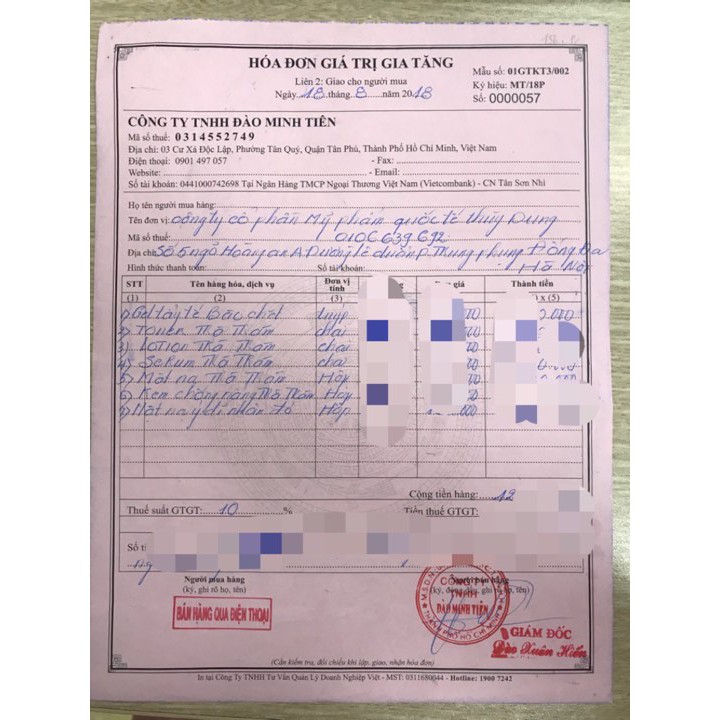 HÓA ĐƠN GIÁ TRỊ GIA TĂNG
Liên 2: Giao cho người mua
Ngày...18...tháng...8......năm 2018
Mẫu số: 01GTKT3/002
Ký hiệu: MT/18P
Số: 0000057
CÔNG TY TNHH ĐÀO MINH TIÊN
Mã số thuế: 0314552749
Địa chỉ: 03 Cư Xá Độc Lập, Phường Tân Quý, Quận Tân Phú, Thành Phố Hồ Chí Minh, Việt Nam
Điện thoại: 0901 497 057 - Fax:
Website: - Email:
Số tài khoản: 0441000742698 Tại Ngân Hàng TMCP Ngoại Thương Việt Nam (Vietcombank) - CN Tân Sơn Nhì
Họ tên người mua hàng:
Tên đơn vị: Công ty cổ phần Mỹ phẩm quốc tế Thùy Dung
Mã số thuế: 0106639692
Địa chỉ: Số 5 ngõ Hoàng An A Đường Lê Duẩn P. Trung Phụng Đống Đa
Hà Nội
Hình thức thanh toán: Số tài khoản:
STT Tên hàng hóa, dịch vụ Đơn vị tính giá Thành tiền
(1) (2) (3) x (5)
1) Gel tẩy tế bào chết tuýp
2) Toner Thỏ Thỏm chai
3) Lotion Thỏ Thỏm chai
4) Serum Thỏ Thỏm chai
5) Mặt nạ Thỏ Thỏm Hộp
6) Kem chống nắng Thỏ Thỏm Hộp
7) Mặt nạ y dĩ nhân đỏ Hộp
Cộng tiền hàng:......12
Thuế suất GTGT:......10......% Tiền thuế GTGT:
Số ti
Người mua hàng
(ký, ghi rõ họ, tên)
BÁN HÀNG QUA ĐIỆN THOẠI
Người bán hàng
CÔNG TY
TNHH
ĐÀO MINH TIÊN
THÀNH PHỐ HỒ CHÍ MINH
GIÁM ĐỐC
Đào Xuân Hiển
(Cần kiểm tra, đối chiếu khi lập, giao, nhận hóa đơn)
In tại Công Ty TNHH Tư Vấn Quản Lý Doanh Nghiệp Việt - MST: 0311680044 - Hotline: 1900 7242